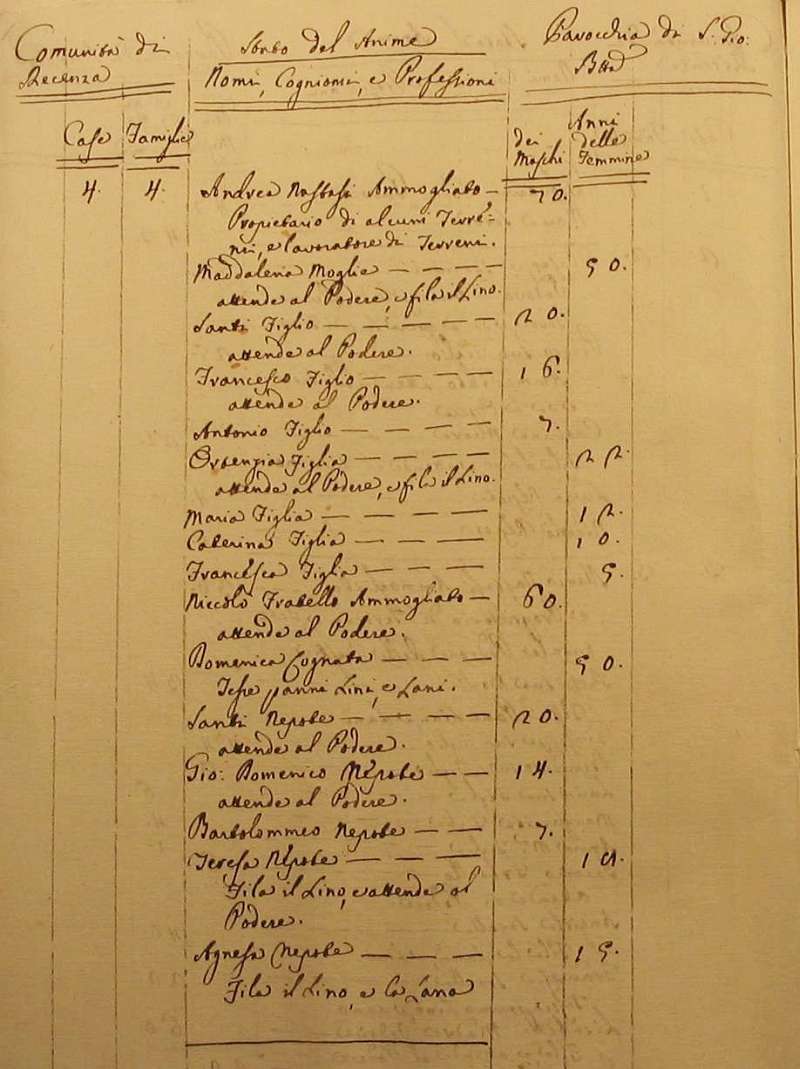 Comunità di Stato del Anime Parocchia di S. Gio:
Recenza Nomi, Cogniomi, e Professioni Btta
Case Famiglie dei Maschi Anni delle Femmine
4. 4. Andrea Nastasi Ammogliato — 70.
Propietario di alcuni Terre-
ni, e lavoratore di Terreni.
Maddalena Moglie — — — — 50.
attende al Podere, e fila il Lino.
Santi Figlio — — — — 20.
attende al Podere.
Francesco Figlio — — — — 16.
attende al Podere.
Antonio Figlio — — — — 7.
Orsenzia Figlia — — — — 22.
attende al Podere, e fila il Lino.
Maria Figlia — — — — 12.
Caterina Figlia — — — — 10.
Francesca Figlia — — — 5.
Niccolò Fratello Ammogliato — 60.
attende al Podere.
Domenica Cognata — — — 50.
Tesse panni Lini, e Lani.
Santi Nepote — — — — 20.
attende al Podere.
Gio: Domenico Nepote — — 14.
attende al Podere.
Bartolommeo Nepote — — 7.
Teresa Nepote — — — — 1
Fila il Lino, e attende al
Podere.
Agnesa Nepote — — — 15.
Fila il Lino, e la Lana